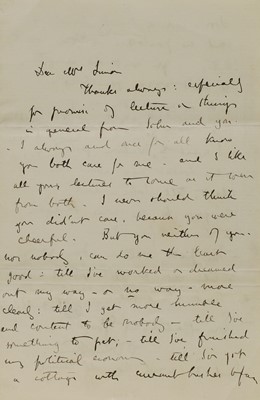 Dear Mrs Simon
Thanks always: especially
for promise of lecture on things
in general from John and you
. I always and once for all know
you both care for me. and I like
all your lectures to come as it were
from both. I never should think
you didn't care, because you were
cheerful. But you neither of you.
nor nobody, can do me the least
good: till I've worked or dreamed
out my way - or no way - more
clearly: till I get more humble
and content to be nobody - till I've
something to pet; - till I've finished
my political economy - till I've got
a cottage with currant bushes